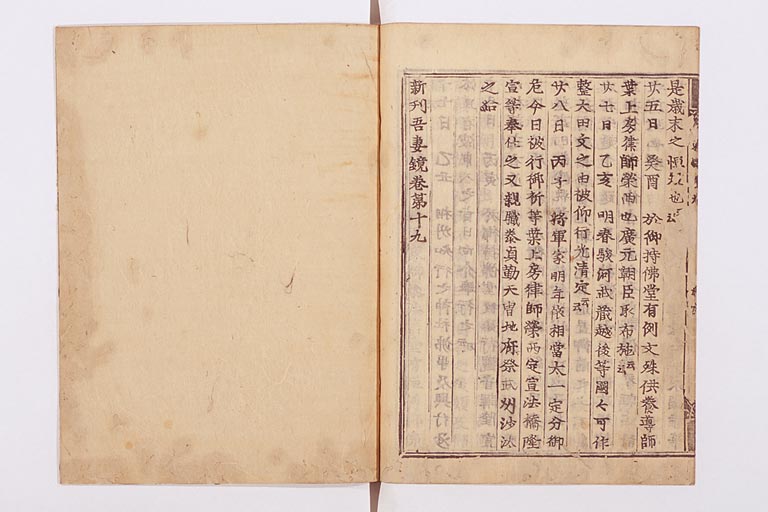 是歳末之恒例也云々
廿五日 癸酉 於御持佛堂有例文殊供養導師
葉上房律師榮西也廣元朝臣取布施云々
廿七日 乙亥 明春駿河武藏越後等國々可作
整大田文之由被仰行光清定云々
廿八日 丙子 將軍家明年依相當太一定分御
危今日被行御祈等葉上房律師榮西定宣法橋隆
宣等奉仕之又親職泰貞勤天曺地府祭武州沙汰
之給
新刊吾妻鏡卷第十九